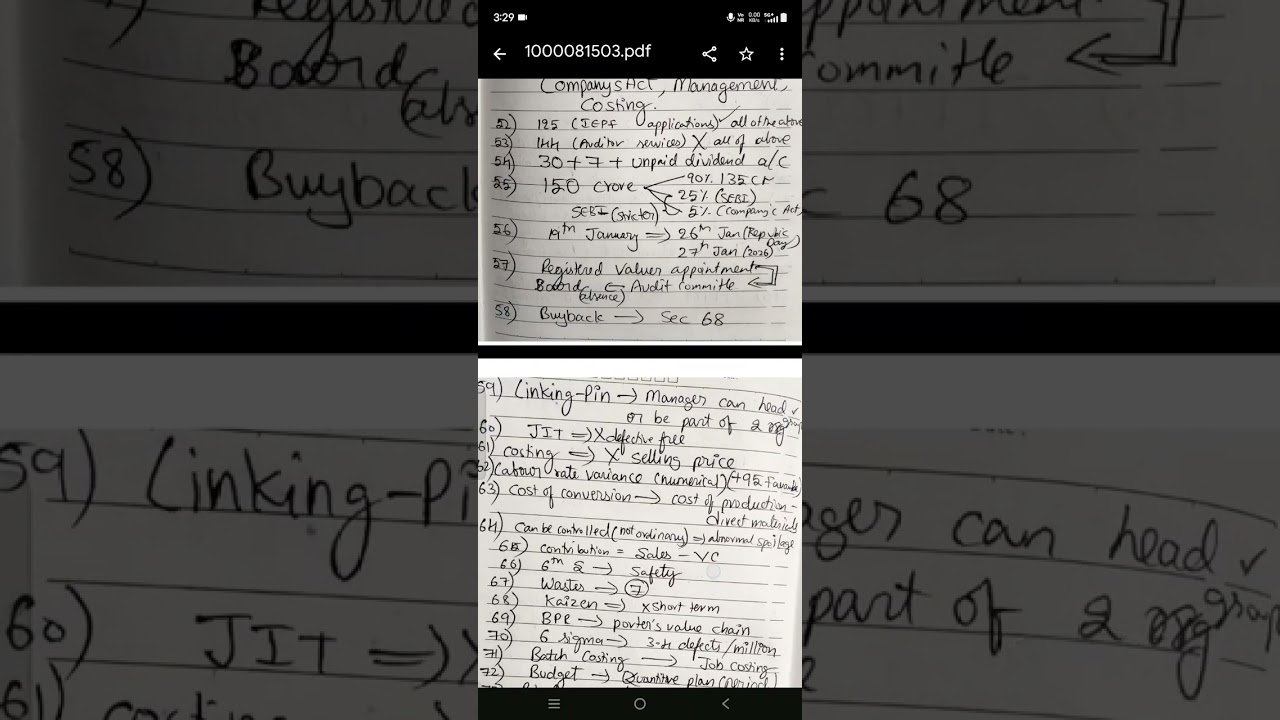 3:29
Vo NR 0.00 KB/s 5G+
1000081503.pdf
Company's Act, Management,
Costing.
52) 125 (IEPF applications) ✓ all of the above
53) 144 (Auditor services) X all of above
54) 30+7+ unpaid dividend a/c
55) 150 crore 90% 135 Cr
25% (SEBI)
SEBI (stricter) 5% (Company's Act)
56) 19th January => 26th Jan (Republic Day)
27th Jan (2026)
57) Registered Valuer appointment
Board (absence) ← Audit committe
58) Buyback → Sec 68
59) Linking-Pin → Manager can head ✓
or be part of 2 org groups
60) JIT => X defective free
61) costing => X selling price
62) Labour rate variance (numerical) (+492 favourable)
63) Cost of conversion → cost of production -
direct materials
64) Can be controlled (not ordinary) => abnormal spoilage
65) contribution = Sales - VC
66) 6th S → Safety
67) Wastes → 7
68) Kaizen => X short term
69) BPR → porter's value chain
70) 6 sigma → 3.4 defects/million
71) Batch Costing → Job costing
72) Budget → Quantitive plan (period)